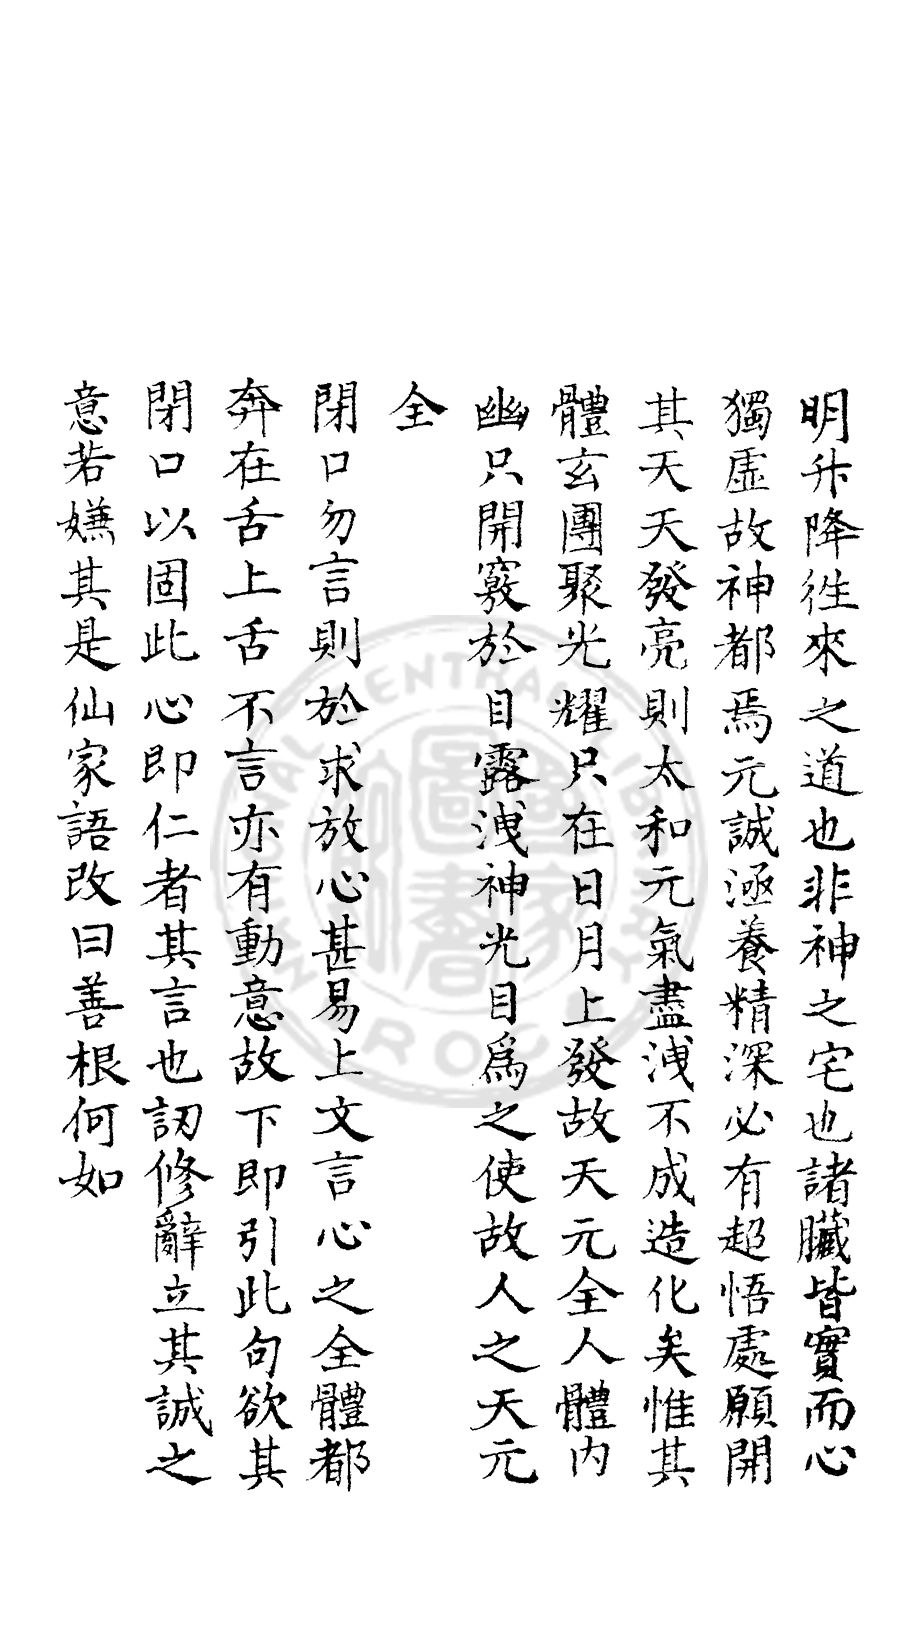 明升降徃來之道也非神之宅也諸臟皆實而心
獨虛故神都焉元誠涵養精深必有超悟處願開
其天天發亮則太和元氣盡洩不成造化矣惟其
體玄團聚光耀只在日月上發故天元全人體内
幽只開竅於目露洩神光目爲之使故人之天元
全
閉口勿言則於求放心甚易上文言心之全體都
奔在舌上舌不言亦有動意故下即引此句欲其
閉口以固此心即仁者其言也訒修辭立其誠之
意若嫌其是仙家語改曰善根何如